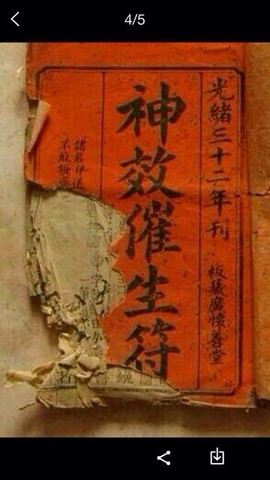 4/5
光緒三十二年刊
板藏廣懷善堂
神效催生符